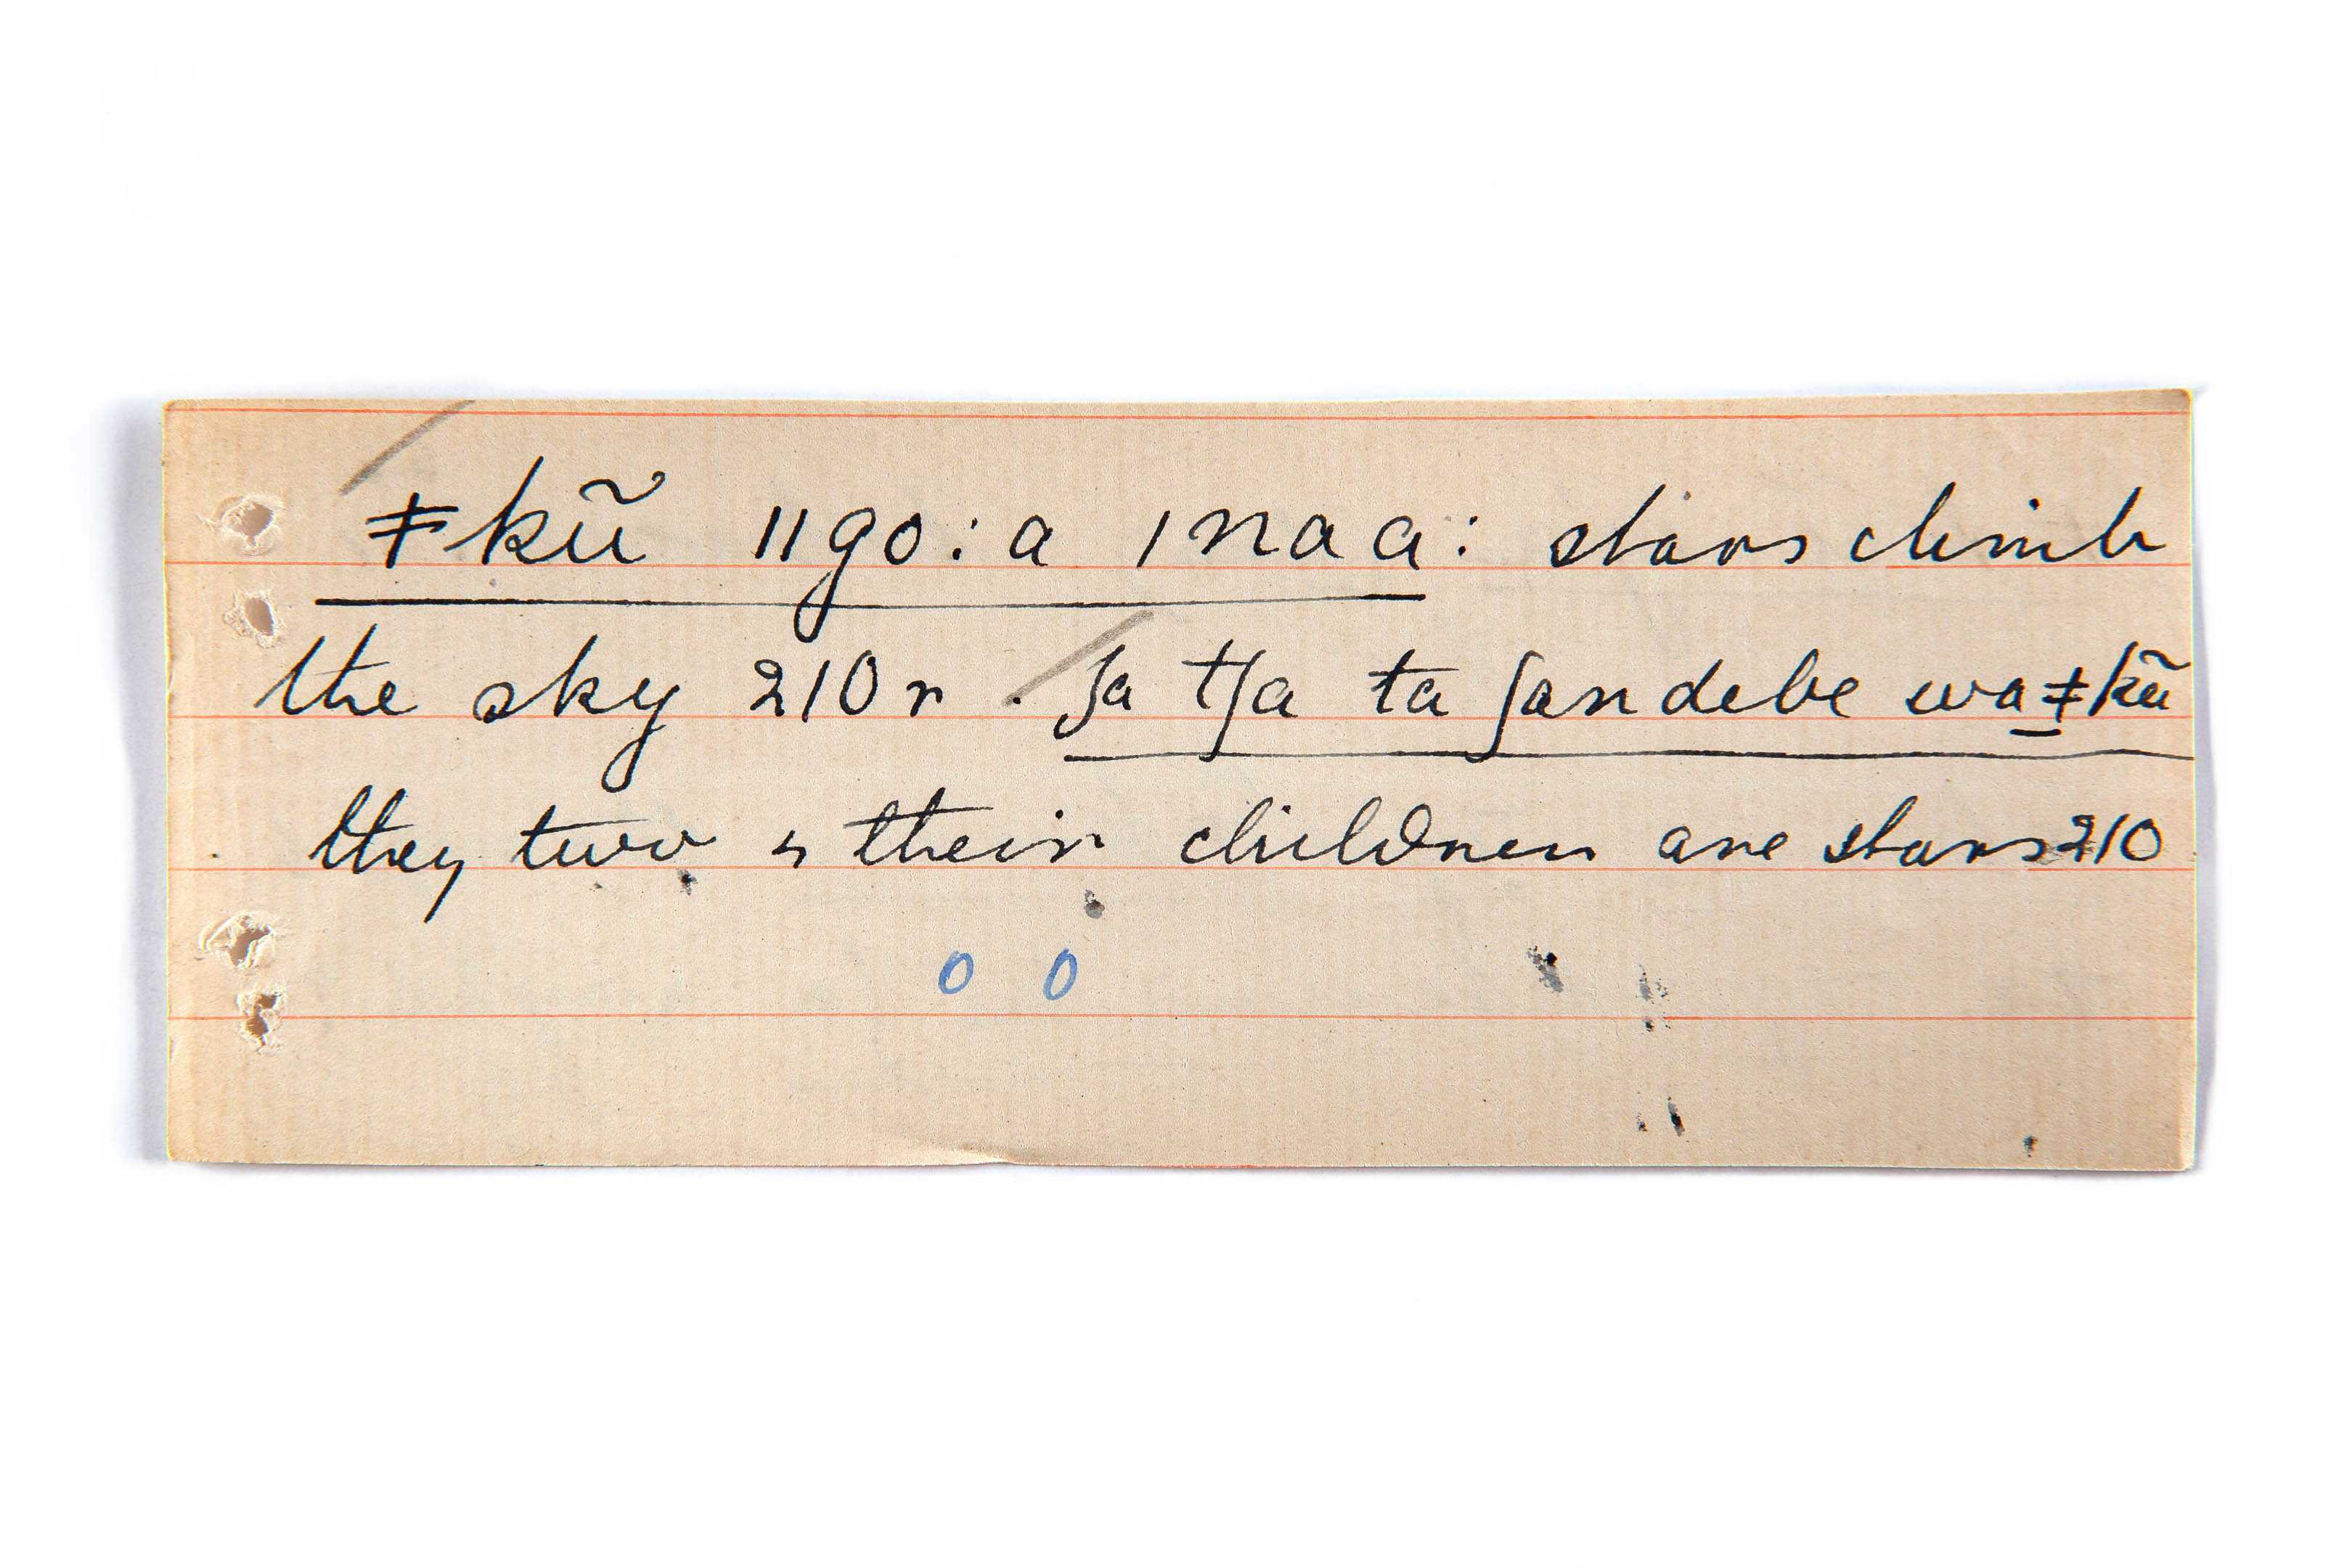 ǂkũ ǁgo:a ǀnaa: stars climb
the sky 210r. ʃa tʃa ta ʃandebe wa ǂkũ
they two & their children are stars 210
0 0